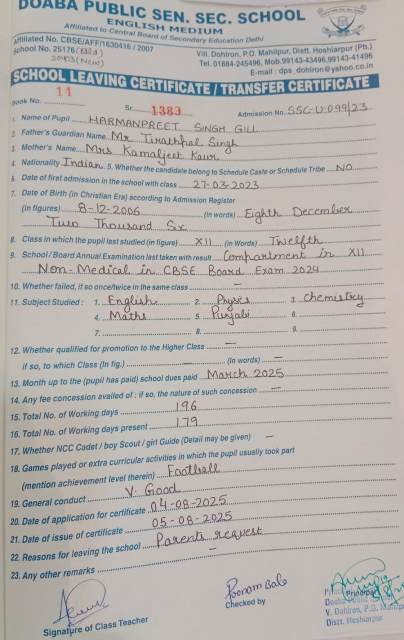 DOABA PUBLIC SEN. SEC. SCHOOL
ENGLISH MEDIUM
Affiliated to Central Board of Secondary Education Delhi
Affiliated No. CBSE/AFF/1630416 / 2007
School No. 25176 (Old)
20313 (New)
Vill. Dohlron, P.O. Mahilpur, Distt. Hoshiarpur (Pb.)
Tel. 01884-245496, Mob.99143-43496,99143-41496
E-mail : dps_dohlron@yahoo.co.in
SCHOOL LEAVING CERTIFICATE / TRANSFER CERTIFICATE
Book No. 11 Sr. 1383 Admission No. SSC-U-099/23
1. Name of Pupil HARMANPREET SINGH GILL
2. Father's Guardian Name Mr Tirathpal Singh
3. Mother's Name Mrs Kamaljeet Kaur
4. Nationality Indian 5. Whether the candidate belong to Schedule Caste or Schedule Tribe NO
6. Date of first admission in the school with class 27-03-2023
7. Date of Birth (in Christian Era) according to Admission Register
(in figures) 8-12-2006 (in words) Eighth December
Two Thousand Six
8. Class in which the pupil last studied (in figure) XII (in Words) Twelfth
9. School / Board Annual Examination last taken with result Compartment in XII
Non-Medical in CBSE Board Exam 2024
10. Whether failed, if so once/twice in the same class —
11. Subject Studied : 1. English 2. Physcs 3. chemistry
4. Maths 5. Punjabi 6.
7. 8. 9.
12. Whether qualified for promotion to the Higher Class —
if so, to which Class (In fig.) — (In words) —
13. Month up to the (pupil has paid) school dues paid March 2025
14. Any fee concession availed of : if so, the nature of such concession —
15. Total No. of Working days 196
16. Total No. of Working days present 179
17. Whether NCC Cadet / boy Scout / girl Guide (Detail may be given) —
18. Games played or extra curricular activities in which the pupil usually took part
(mention achievement level therein) Football
19. General conduct V. Good
20. Date of application for certificate 04-08-2025
21. Date of issue of certificate 05-08-2025
22. Reasons for leaving the school Parents request
23. Any other remarks —
Signature of Class Teacher
Poonam Bala
Checked by
Principal
V. Dohlron, P.O. Mahilpur
Distt. Hoshiarpur